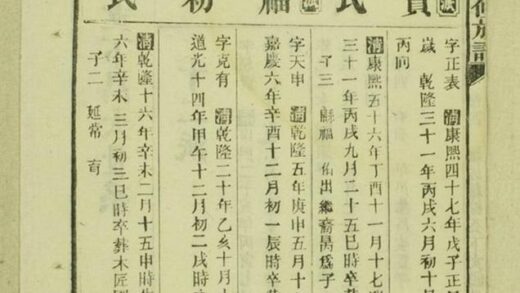 修族譜
字正表 清康熙四十七年戊子正
歲 乾隆三十一年丙戌六月初十
丙向
清康熙五十六年丁酉十一月十七
三十一年丙戌九月二十五巳時卒
子三 縣福 佑出繼裔萬爲子
字天申 清乾隆五年庚申五月十
嘉慶六年辛酉十二月初一辰時卒
字克有 清乾隆二十年乙亥十月
道光十四年甲午十二月初二戌時
清乾隆十六年辛未二月十五申時
六年辛未三月初三巳時卒葬木匠
子二 延常 育